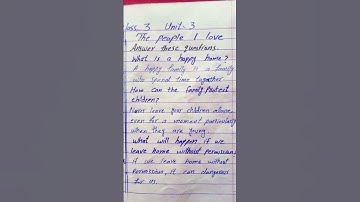 Class 3 Unit-3
The people I love
Answer these questions.
What is a happy home?
A happy family is a family
who spend time together
How can the family Protect
children?
Never leave your children alone,
even for a moment particularly
when they are young.
What will happen if we
leave home without permission?
if we leave home without
Permission, it can dangerous
for us.